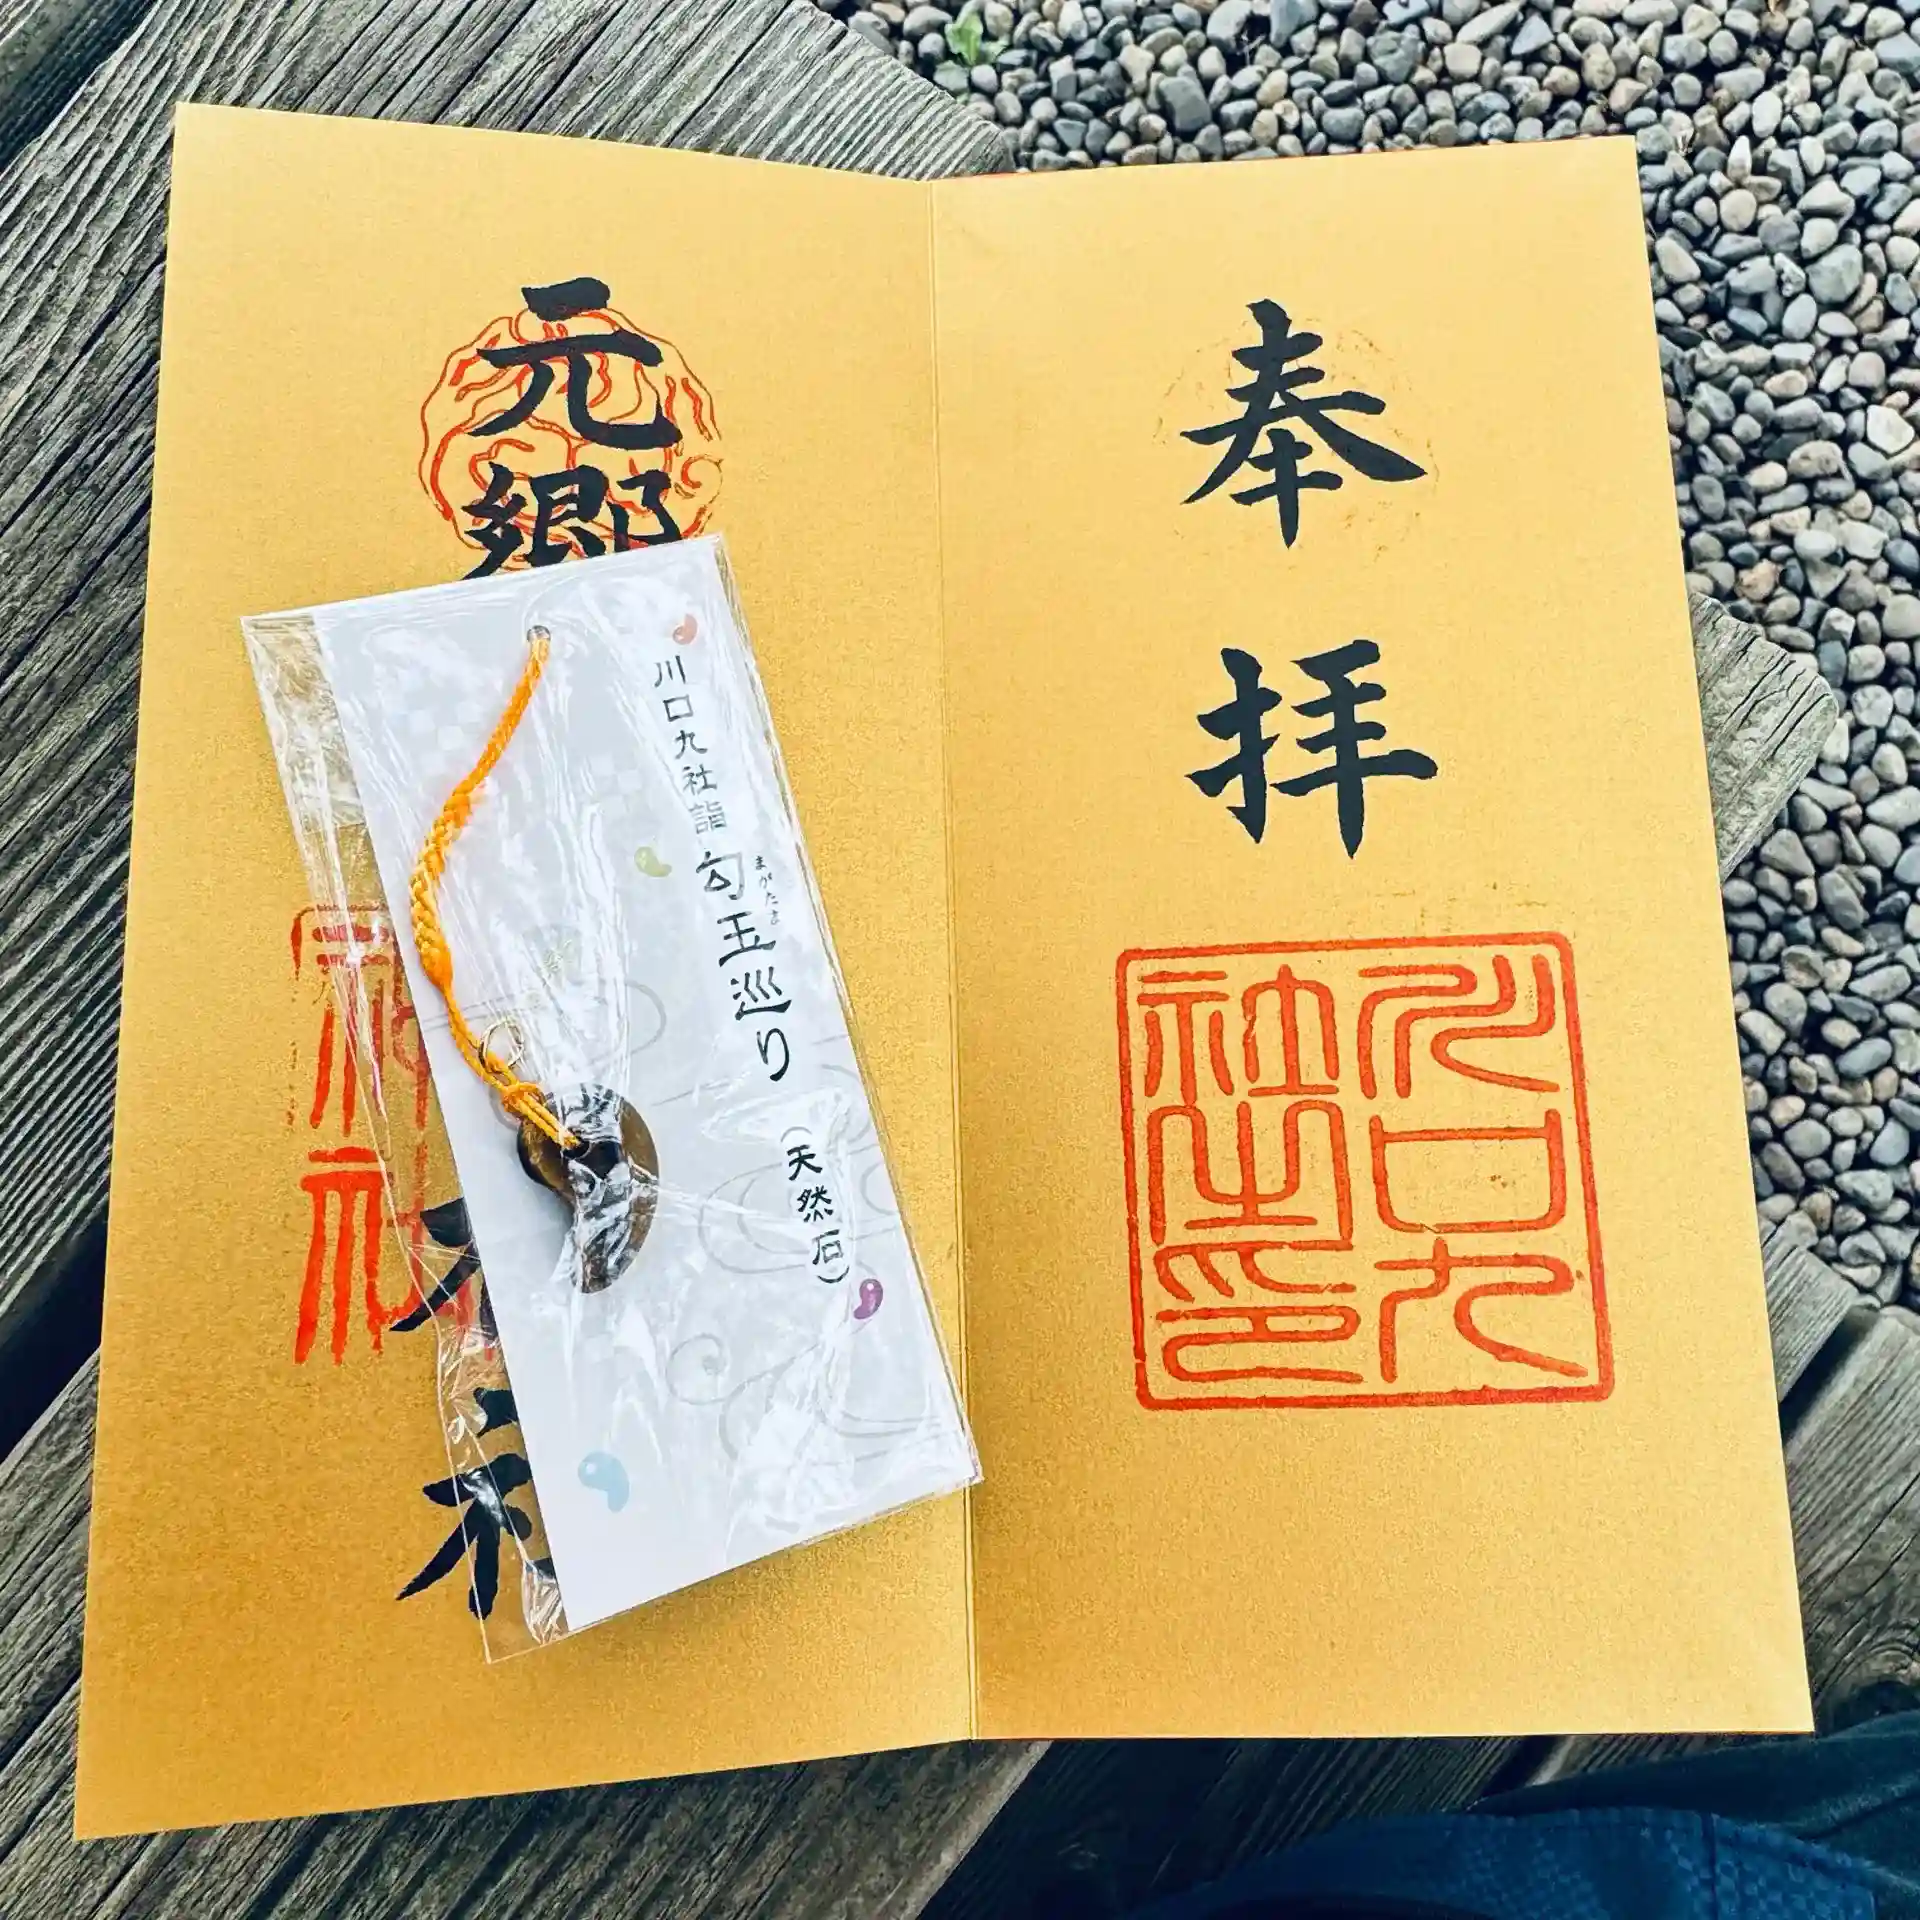 奉拝
川口九
社之印
元郷
川口九社詣 勾玉巡り (天然石)
まがたま